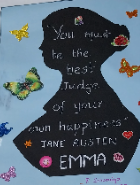 "You must
be the
best
Judge
of your
own happiness"
JANE AUSTEN
EMMA